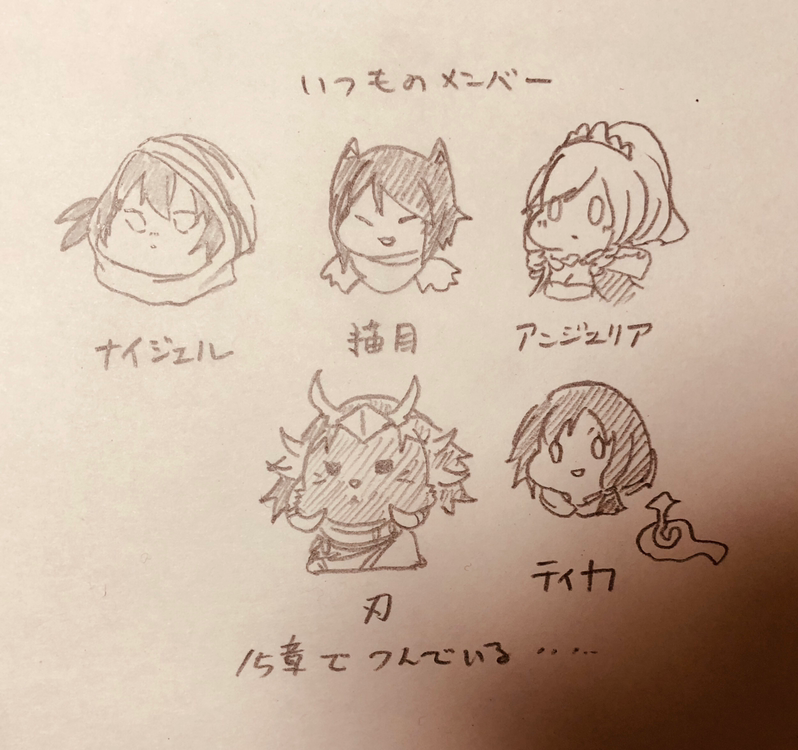 いつものメンバー
ナイジェル
猫目
アンジェリア
刃
ティカ
15章でつんでいる・・・・・